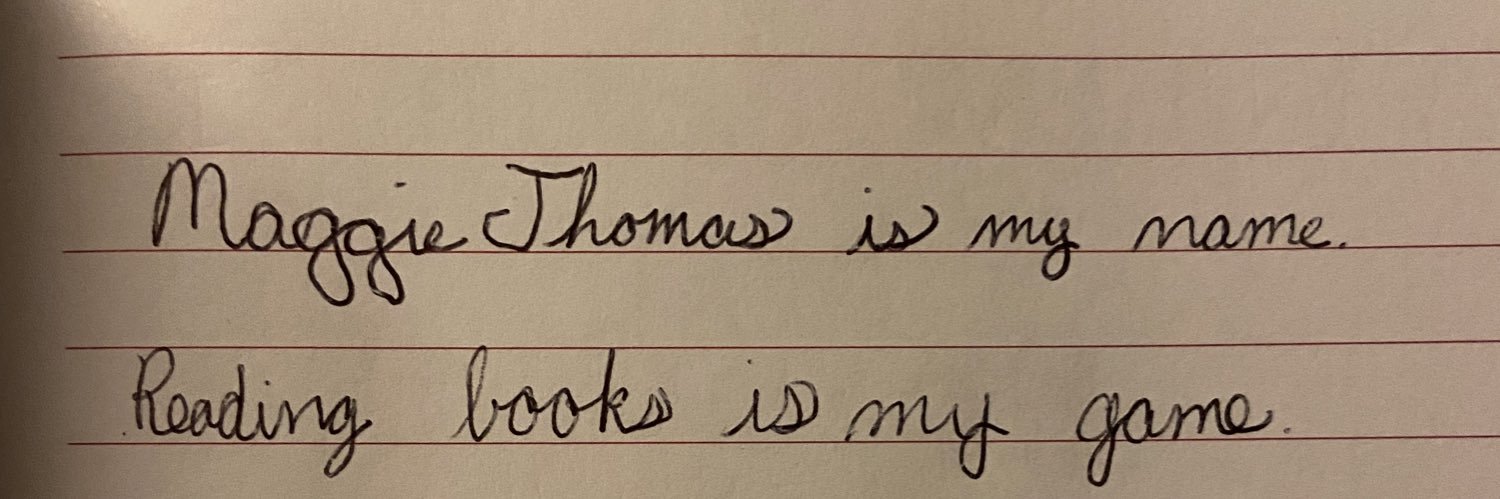 Maggie Thomas is my name.
Reading books is my game.